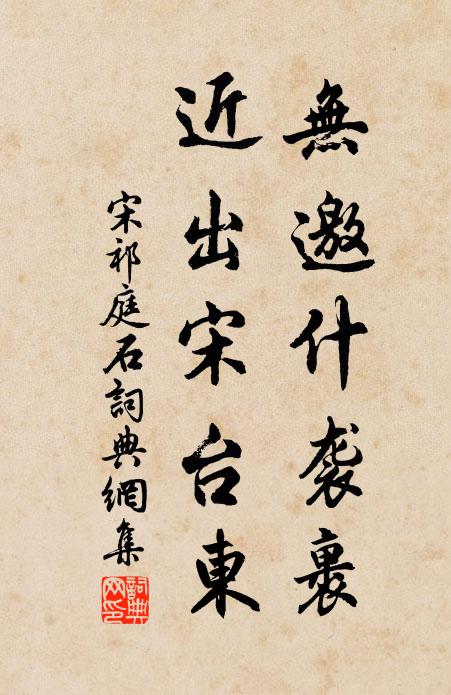 無邀什袭裹
近出宋台東
宋祁庭石詞典網集
詞典网印